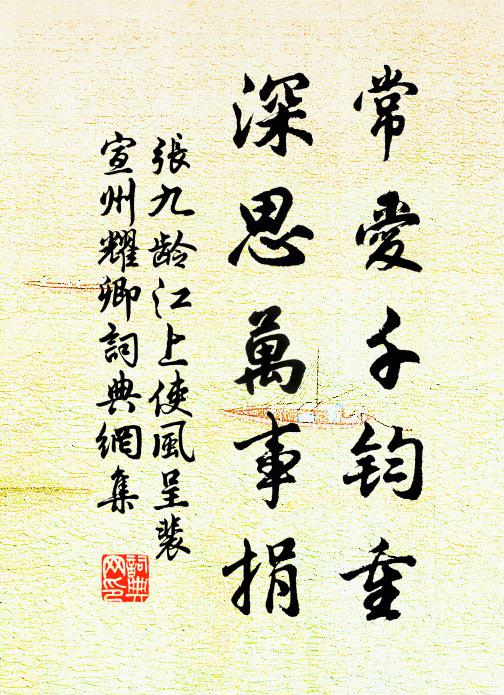 常愛千鈞重
深思萬事捐
張九龄江上使風呈裴
宣州耀卿詞典網集
詞典
网印